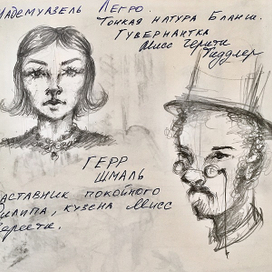 Мадемуазель Легро.
Тонкая натура Бланш.
Гувернантка
Мисс Черити
Тиддлер
ГЕРР
ШМАЛЬ
аставник покойного
илипа, кузена Мисс
ерити.